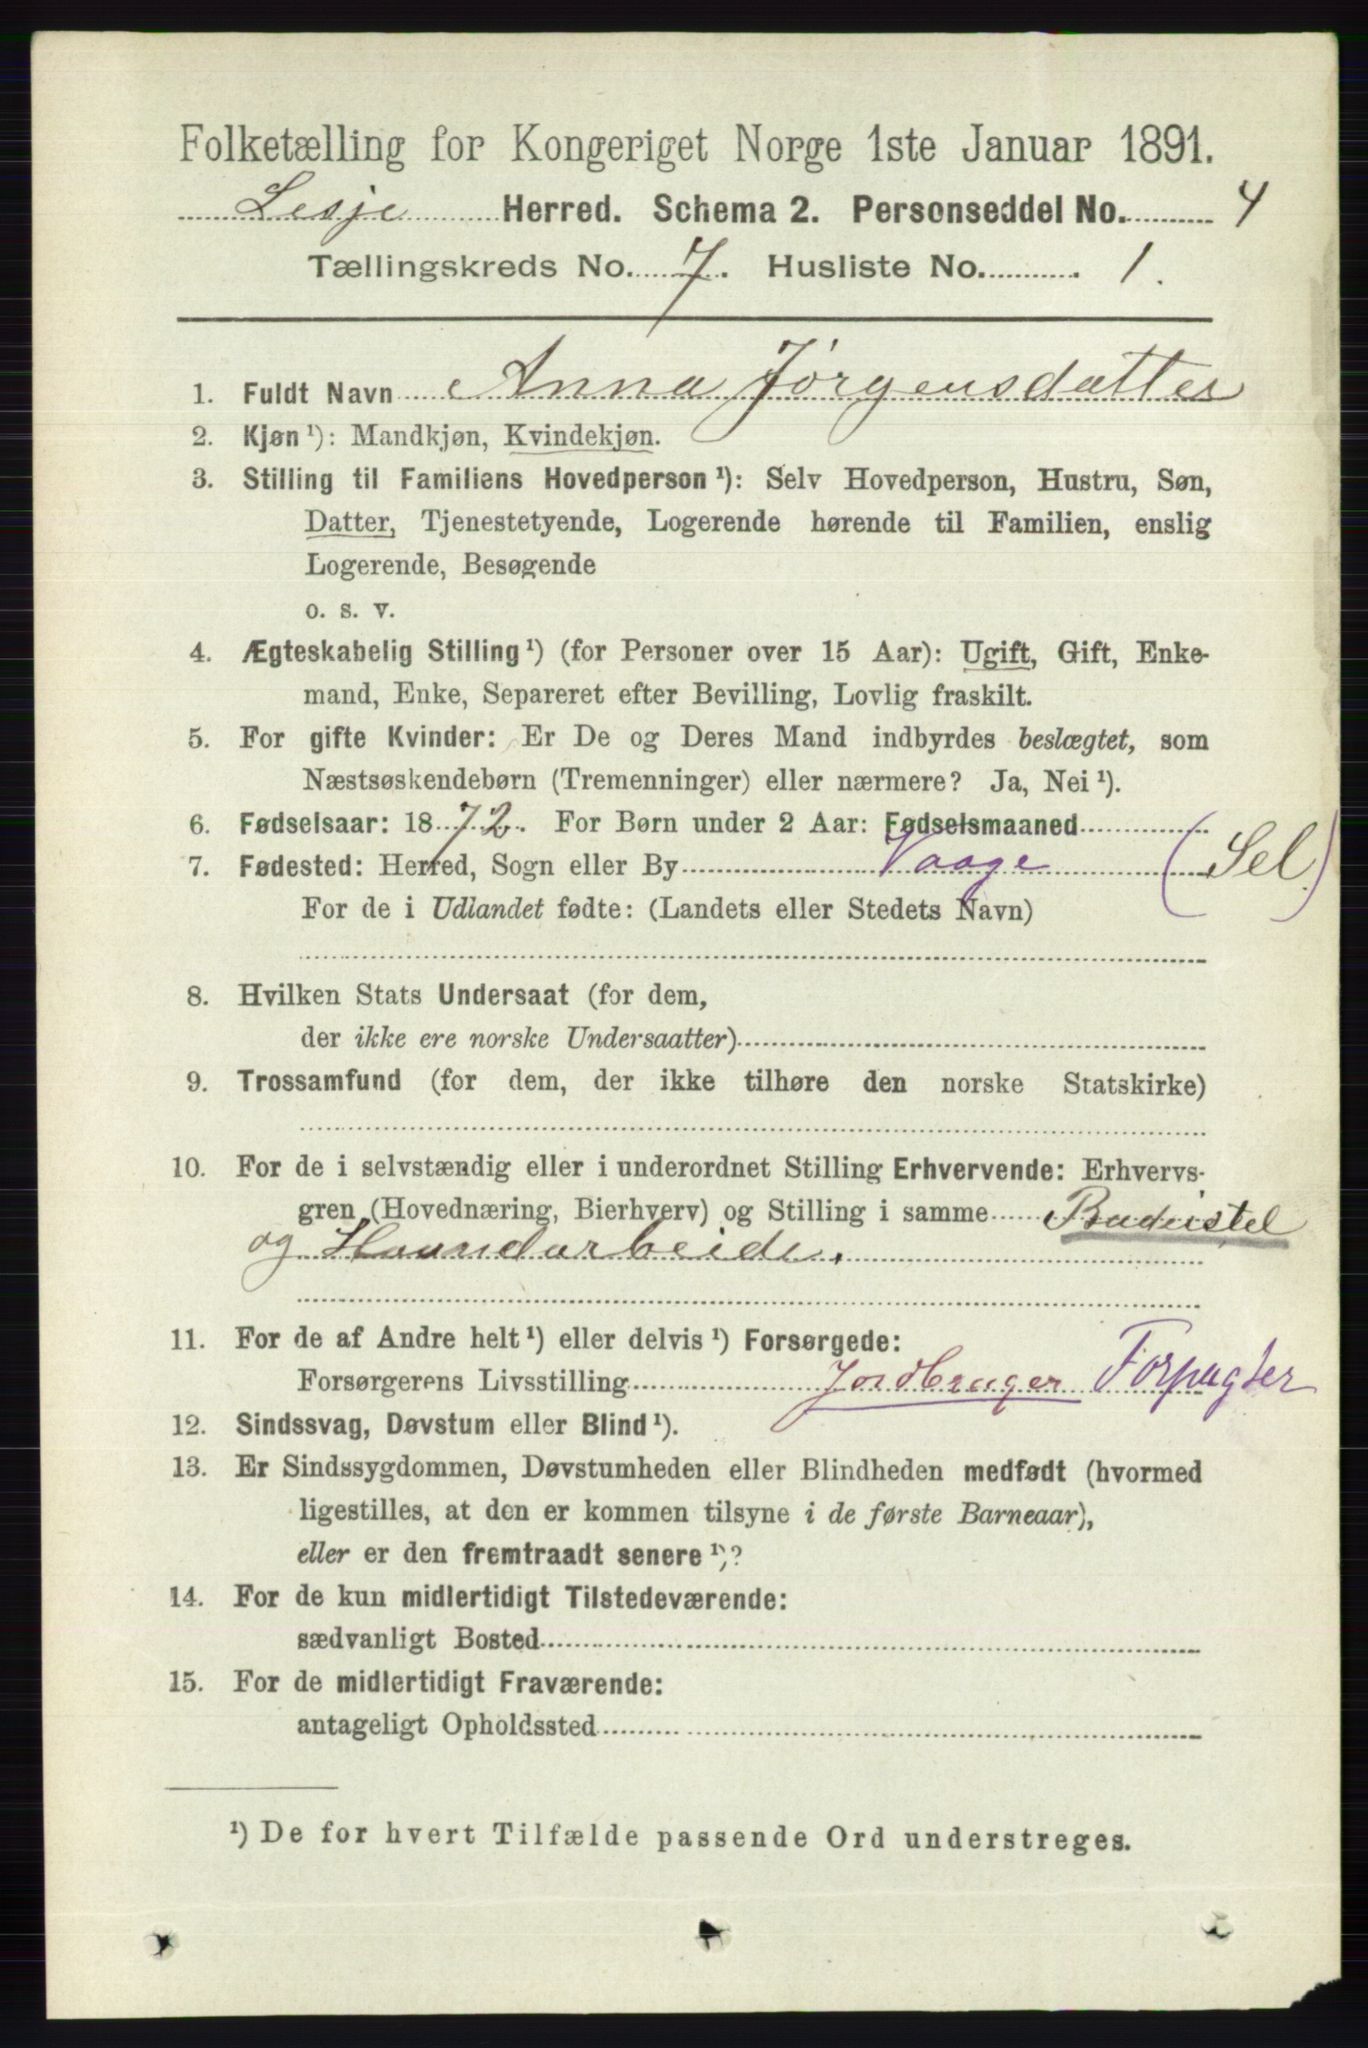 Folketælling for Kongeriget Norge 1ste Januar 1891.
Lesje Herred. Schema 2. Personseddel No. 4
Tællingskreds No. 7. Husliste No. 1.
1. Fuldt Navn Anna Jørgensdatter
2. Kjøn ¹): Mandkjøn, Kvindekjøn.
3. Stilling til Familiens Hovedperson ¹): Selv Hovedperson, Hustru, Søn,
Datter, Tjenestetyende, Logerende hørende til Familien, enslig
Logerende, Besøgende
o. s. v.
4. Ægteskabelig Stilling ¹) (for Personer over 15 Aar): Ugift, Gift, Enke-
mand, Enke, Separeret efter Bevilling, Lovlig fraskilt.
5. For gifte Kvinder: Er De og Deres Mand indbyrdes beslægtet, som
Næstsøskendebørn (Tremenninger) eller nærmere? Ja, Nei ¹).
6. Fødselsaar: 1872. For Børn under 2 Aar: Fødselsmaaned
7. Fødested: Herred, Sogn eller By Vaage (Sel)
For de i Udlandet fødte: (Landets eller Stedets Navn)
8. Hvilken Stats Undersaat (for dem,
der ikke ere norske Undersaatter)
9. Trossamfund (for dem, der ikke tilhøre den norske Statskirke)
10. For de i selvstændig eller i underordnet Stilling Erhvervende: Erhvervs-
gren (Hovednæring, Bierhverv) og Stilling i samme Budeistel
og Haandarbeide.
11. For de af Andre helt ¹) eller delvis ¹) Forsørgede:
Forsørgerens Livsstilling Jordbruger Forpagter
12. Sindssvag, Døvstum eller Blind ¹).
13. Er Sindssygdommen, Døvstumheden eller Blindheden medfødt (hvormed
ligestilles, at den er kommen tilsyne i de første Barneaar),
eller er den fremtraadt senere ¹)?
14. For de kun midlertidigt Tilstedeværende:
sædvanligt Bosted
15. For de midlertidigt Fraværende:
antageligt Opholdssted
¹) De for hvert Tilfælde passende Ord understreges.